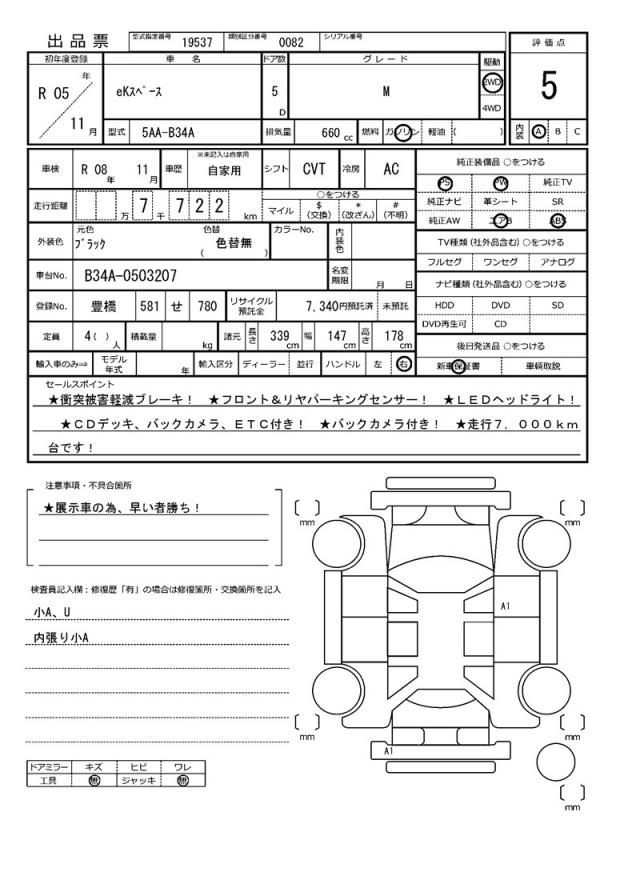 出品票 型式指定番号 19537 類別区分番号 0082 シリアル番号
評価点
5
内装 A B C
初年度登録 車名 ドア数 グレード 駆動
R 05 年 11 月 eKスペース 5 D M 2WD 4WD
型式 5AA-B34A 排気量 660 cc 燃料 ガソリン 軽油 ( )
車検 R 08 年 11 月 車歴 ※未記入は自家用 自家用 シフト CVT 冷房 AC
走行距離 万 7 千 7 2 2 km
○をつける
マイル $ (交換) * (改ざん) # (不明)
外装色 元色 ブラック 色替 ( 色替無 ) カラーNo. 内装色
車台No. B34A-0503207 名変期限 月 日
登録No. 豊橋 581 せ 780 リサイクル預託金 7,340円預託済 未預託
定員 4( ) 人 積載量 kg 諸元 長さ 339 cm 幅 147 cm 高さ 178 cm
輸入車のみ⇒ モデル年式 年 輸入区分 ディーラー 並行 ハンドル 左 右
純正装備品 ○をつける
PS PW 純正TV
純正ナビ 革シート SR
純正AW エアB ABS
TV種類 (社外品含む) ○をつける
フルセグ ワンセグ アナログ
ナビ種類 (社外品含む) ○をつける
HDD DVD SD
DVD再生可 CD
後日発送品 ○をつける
新車保証書 車輌取説
セールスポイント
★衝突被害軽減ブレーキ！ ★フロント＆リヤパーキングセンサー！ ★ＬＥＤヘッドライト！
★ＣＤデッキ、バックカメラ、ＥＴＣ付き！ ★バックカメラ付き！ ★走行７．０００ｋｍ
台です！
注意事項・不具合箇所
★展示車の為、早い者勝ち！
検査員記入欄：修復歴「有」の場合は修復箇所・交換箇所を記入
小A、U
内張り小A
ドアミラー キズ ヒビ ワレ
工具 無 ジャッキ 無
mm
mm
A1
mm
mm
A1
mm